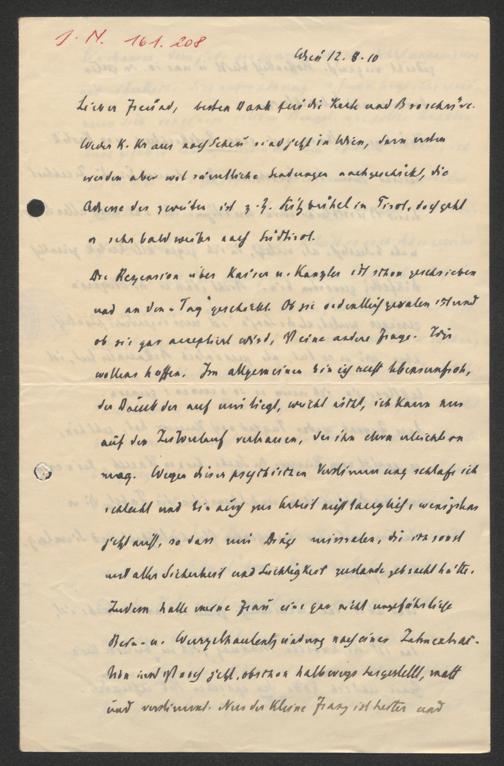 J. N. 161.208
Wien 12.8.10
Lieber Freund, besten Dank für die Karte und Broschüre.
Weder K. Kraus noch Scheu sind jetzt in Wien, dem ersten
werden aber wol sämtliche Sendungen nachgeschickt, die
Adresse des zweiten ist z. Z. Kitzbühel in Tirol, doch geht
er sehr bald weiter nach Südtirol.
Die Rezension über Kaiser u. Kanzler ist schon geschrieben
und an den „Tag“ geschickt. Ob sie ordentlich geraten ist und
ob sie gar acceptiert wird, ist eine andere Frage. Wir
wollens hoffen. Im allgemeinen bin ich recht lebensunfroh,
der Druck der auf mir liegt, weicht nicht, ich kann nur
auf den Zeitverlauf vertrauen, der ihn etwa erleichtern
mag. Wegen dieser psychischen Verstimmung schlafe ich
schlecht und bin auch zur Arbeit nicht tauglich, wenigstens
jetzt nicht, so dass mir Dinge misraten, die ich sonst
mit aller Sicherheit und Leichtigkeit zustande gebracht hätte.
Zudem hatte meine Frau eine gar nicht ungefährliche
Bein- u. Wurzelhautentzündung nach einer Zahnextrak-
tion und ist noch jetzt, obschon halbwegs hergestellt, matt
und verstimmt. Nur der kleine Franz ist heiter und